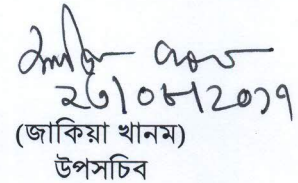 ২৩/০৮/2০১৭
(জাকিয়া খানম)
উপসচিব